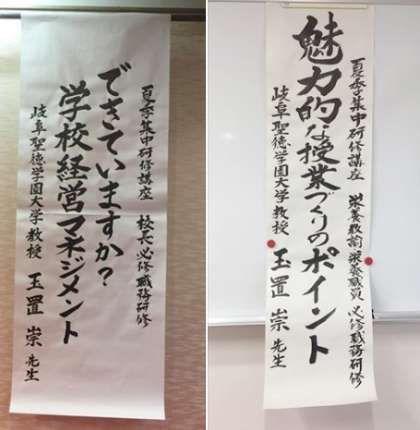 夏季集中研修講座 校長必修職務研修
できていますか?
学校経営マネジメント
岐阜聖徳学園大学教授 玉置崇先生
夏季集中研修講座 栄養教諭 栄養職員 必修職務研修
魅力的な授業づくりのポイント
岐阜聖徳学園大学教授 玉置崇先生